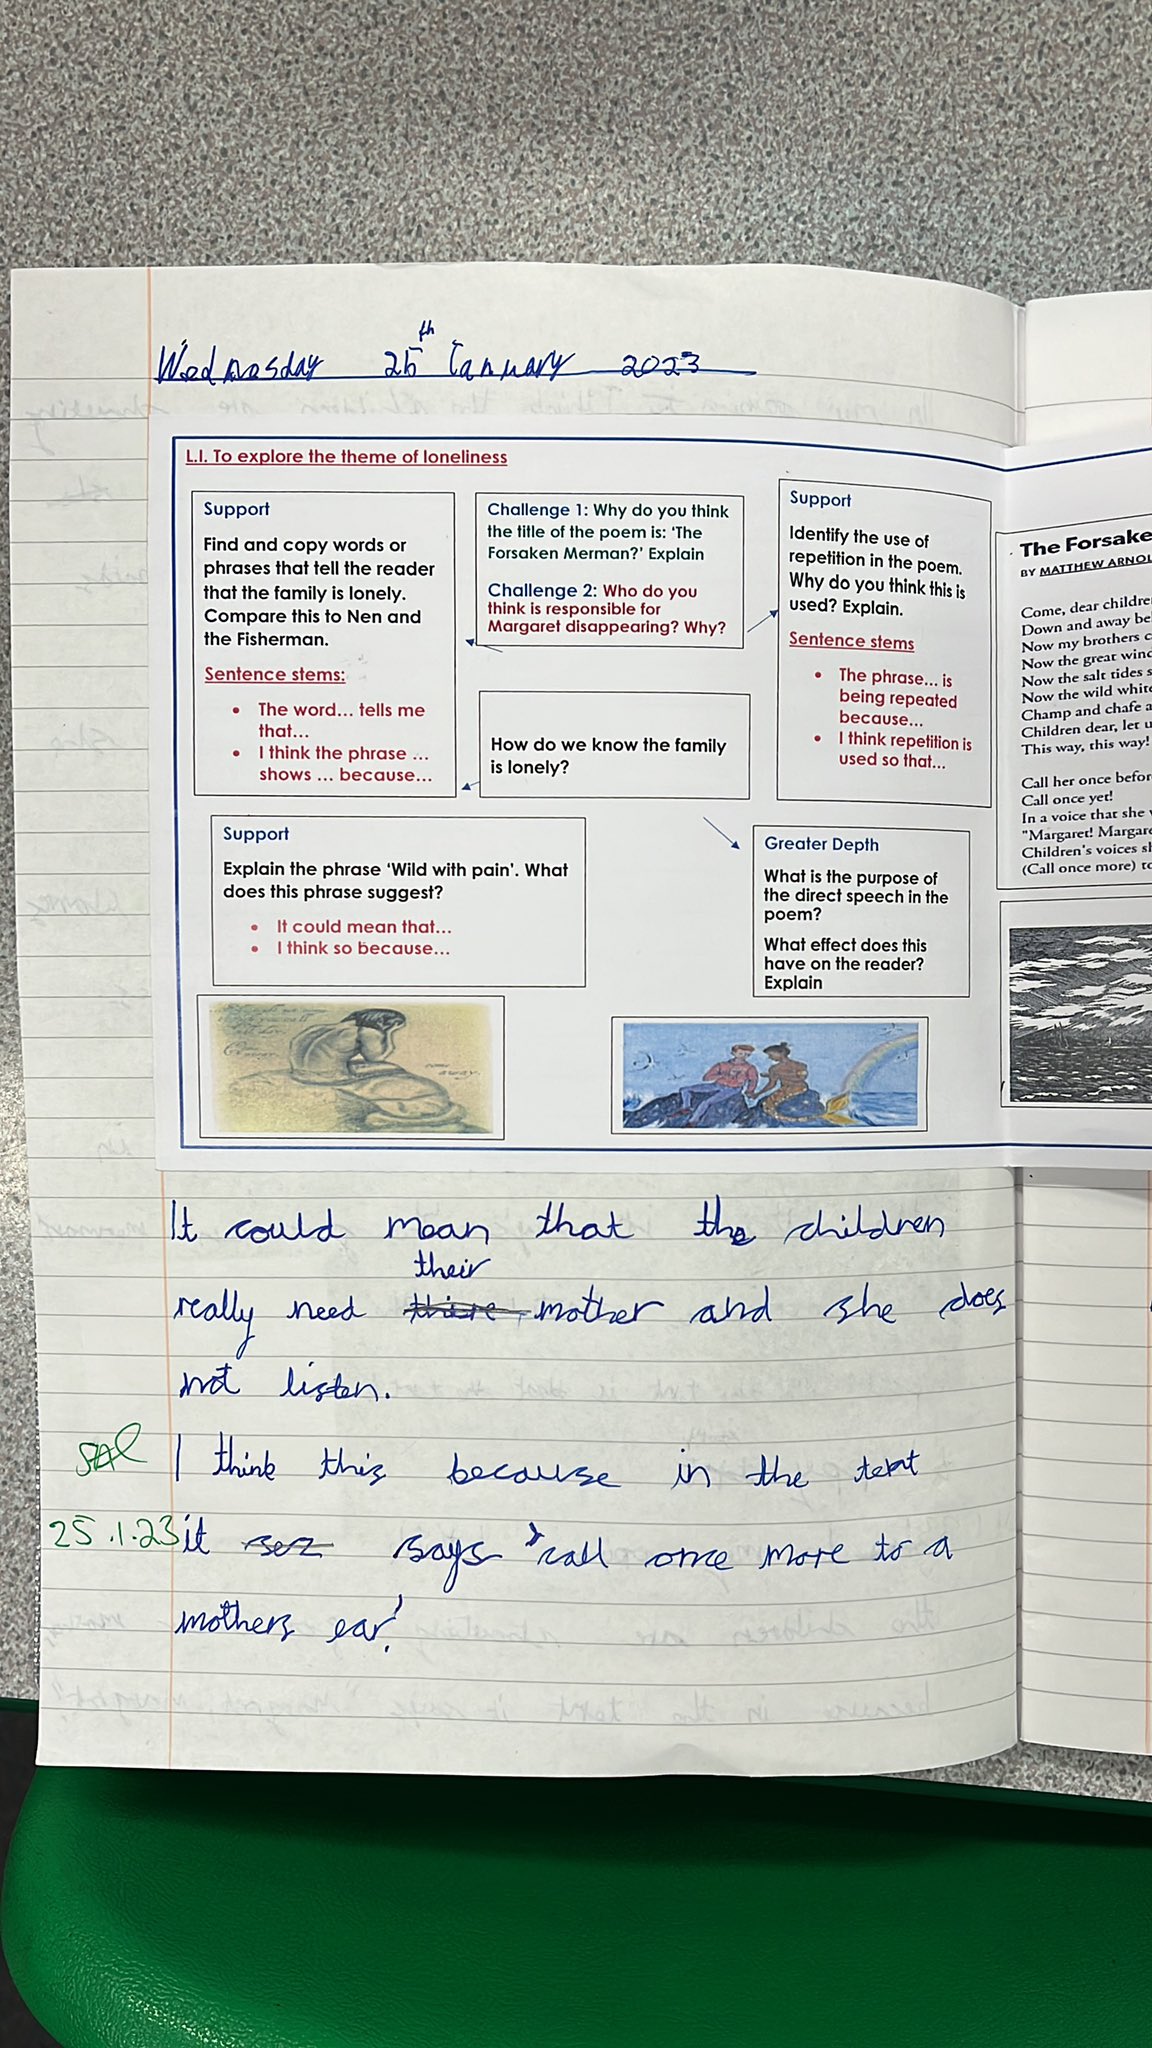 Wednesday 25th January 2023
L.I. To explore the theme of loneliness
Support
Find and copy words or
phrases that tell the reader
that the family is lonely.
Compare this to Nen and
the Fisherman.
Sentence stems:
• The word... tells me
that...
• I think the phrase ...
shows ... because...
Challenge 1: Why do you think
the title of the poem is: 'The
Forsaken Merman?' Explain
Challenge 2: Who do you
think is responsible for
Margaret disappearing? Why?
How do we know the family
is lonely?
Support
Identify the use of
repetition in the poem.
Why do you think this is
used? Explain.
Sentence stems
• The phrase... is
being repeated
because...
• I think repetition is
used so that...
The Forsake
BY MATTHEW ARNOL
Come, dear childre
Down and away be
Now my brothers c
Now the great wind
Now the salt tides s
Now the wild white
Champ and chafe a
Children dear, let u
This way, this way!
Call her once befor
Call once yet!
In a voice that she
"Margaret! Margare
Children's voices sh
(Call once more) to
Support
Explain the phrase 'Wild with pain'. What
does this phrase suggest?
• It could mean that...
• I think so because...
Greater Depth
What is the purpose of
the direct speech in the
poem?
What effect does this
have on the reader?
Explain
away.
It could mean that the children
their
really need mother and she does
not listen.
I think this because in the text
25.1.23 it says 'call once more to a
mothers ear'.